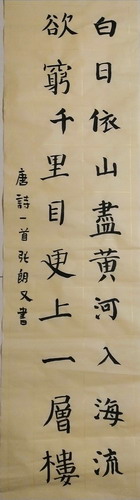 白日依山盡黃河入海流
欲窮千里目更上一層樓
唐詩一首張朗又書